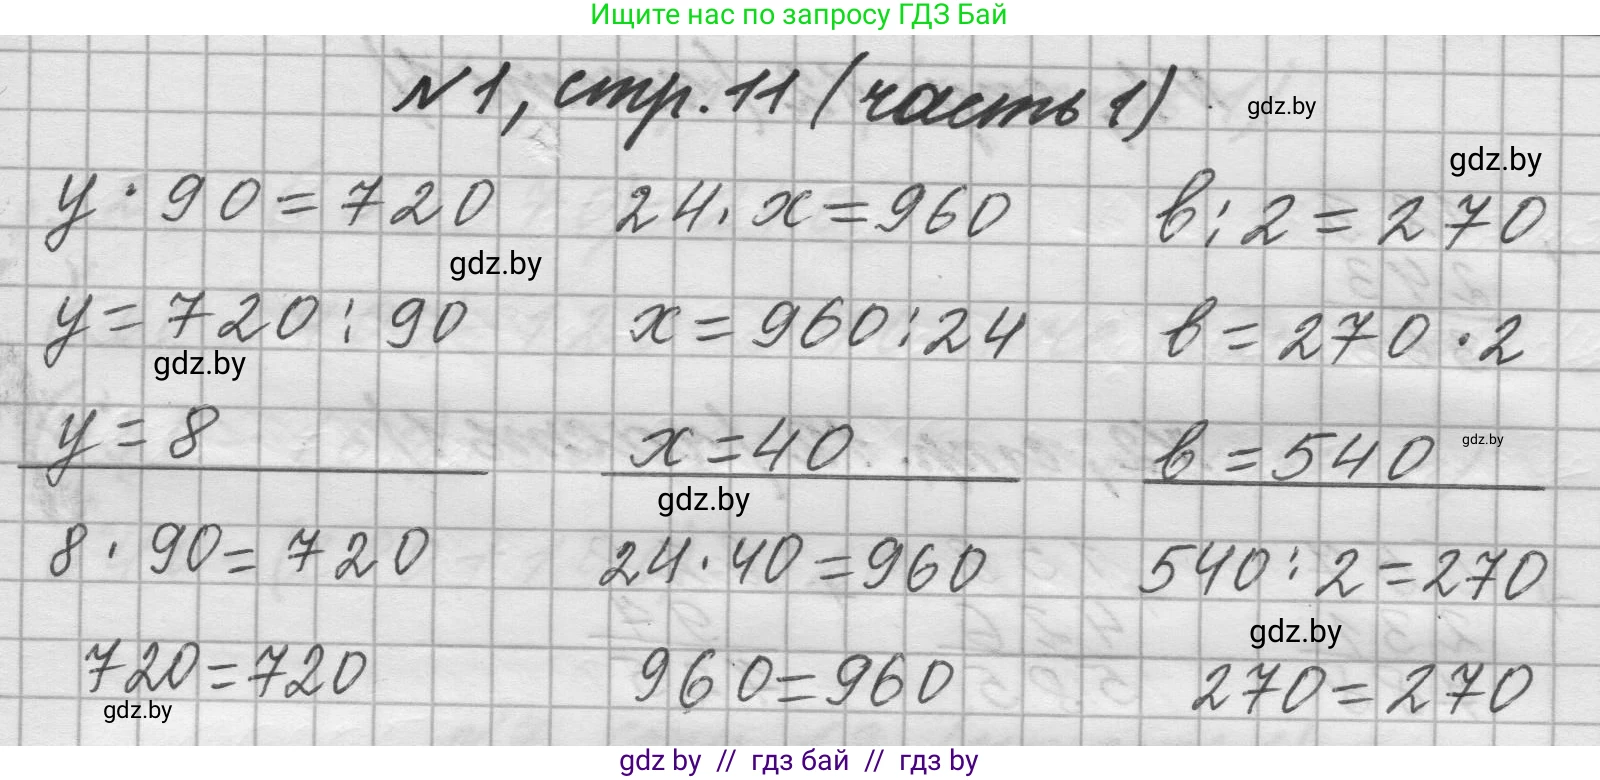 Ищите нас по запросу ГДЗ Бай
№1, стр. 11 (часть 1) gdz.by
gdz.by
y · 90 = 720 24 · x = 960 в : 2 = 270
gdz.by
y = 720 : 90 x = 960 : 24 в = 270 · 2
gdz.by
y = 8 x = 40 в = 540 gdz.by
gdz.by
8 · 90 = 720 24 · 40 = 960 540 : 2 = 270
gdz.by
720 = 720 960 = 960 270 = 270
gdz.by
gdz by // гдз бай // гдз by